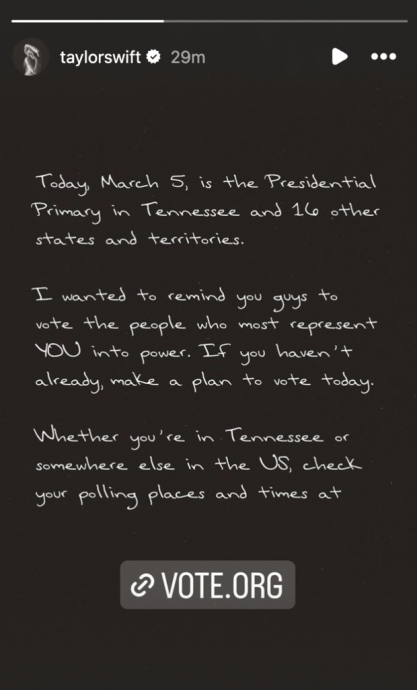 taylorswift 29m
Today, March 5, is the Presidential
Primary in Tennessee and 16 other
states and territories.
I wanted to remind you guys to
vote the people who most represent
YOU into power. If you haven't
already, make a plan to vote today.
Whether you're in Tennessee or
somewhere else in the US, check
your polling places and times at
VOTE.ORG